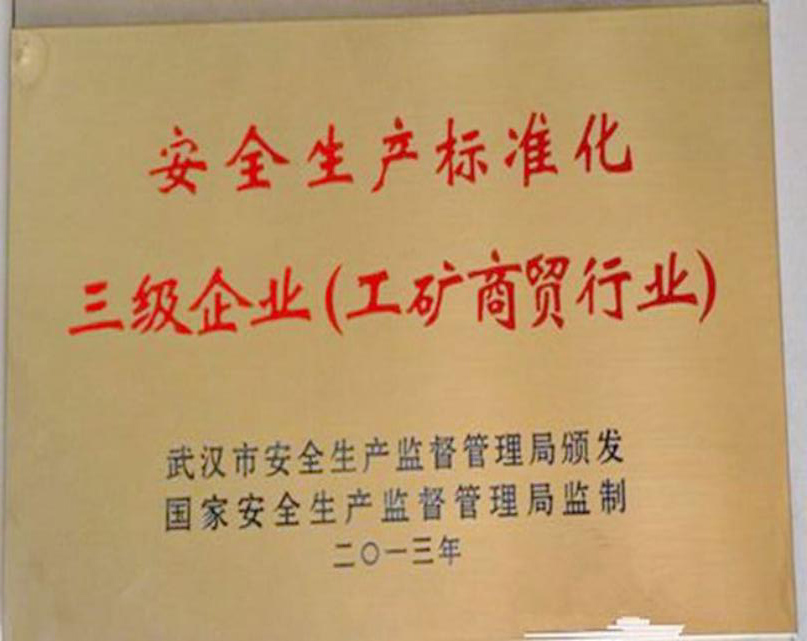 安全生产标准化
三级企业(工矿商贸行业)
武汉市安全生产监督管理局颁发
国家安全生产监督管理局监制
二〇一三年